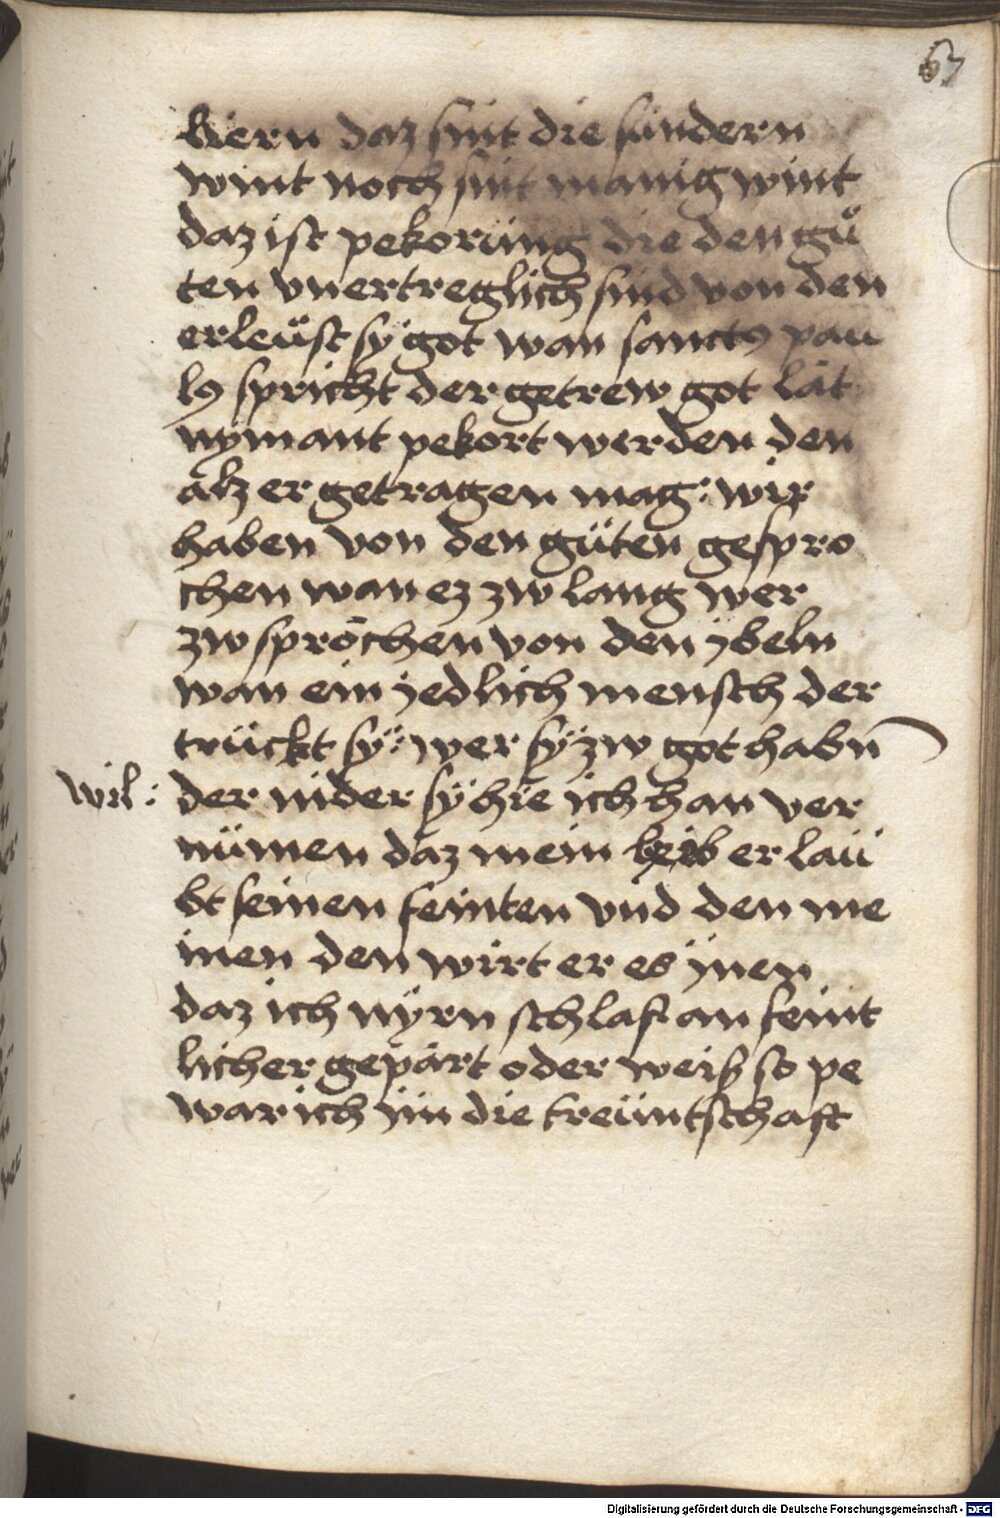 67
kiern daz sint die sündern
wint noch sint manig wint
daz ist pekorüng die den gů
ten vnertreglich sind von den
erleüst sÿ got wan sanctꝰ pau
lꝰ spricht der getrew got lät
nÿmant pekort werden den
alz er getragen mag: wir
haben von den güten gespro
chen wan ez zw lang wer
zw spröchen von den ybeln
wan ein yedlich mensch der
trückt sÿ: wer sÿ zw got habn
wil: der nider sÿ hie ich han ver
nümen daz mein leib erlaü
bt seinen feinten vnd den me
inen den wirt er es ÿnen
daz ich nÿrn schlaf an feint
licher gepärt oder weiß so pe
war ich ÿm die freüntschaft
Digitalisierung gefördert durch die Deutsche Forschungsgemeinschaft - DFG